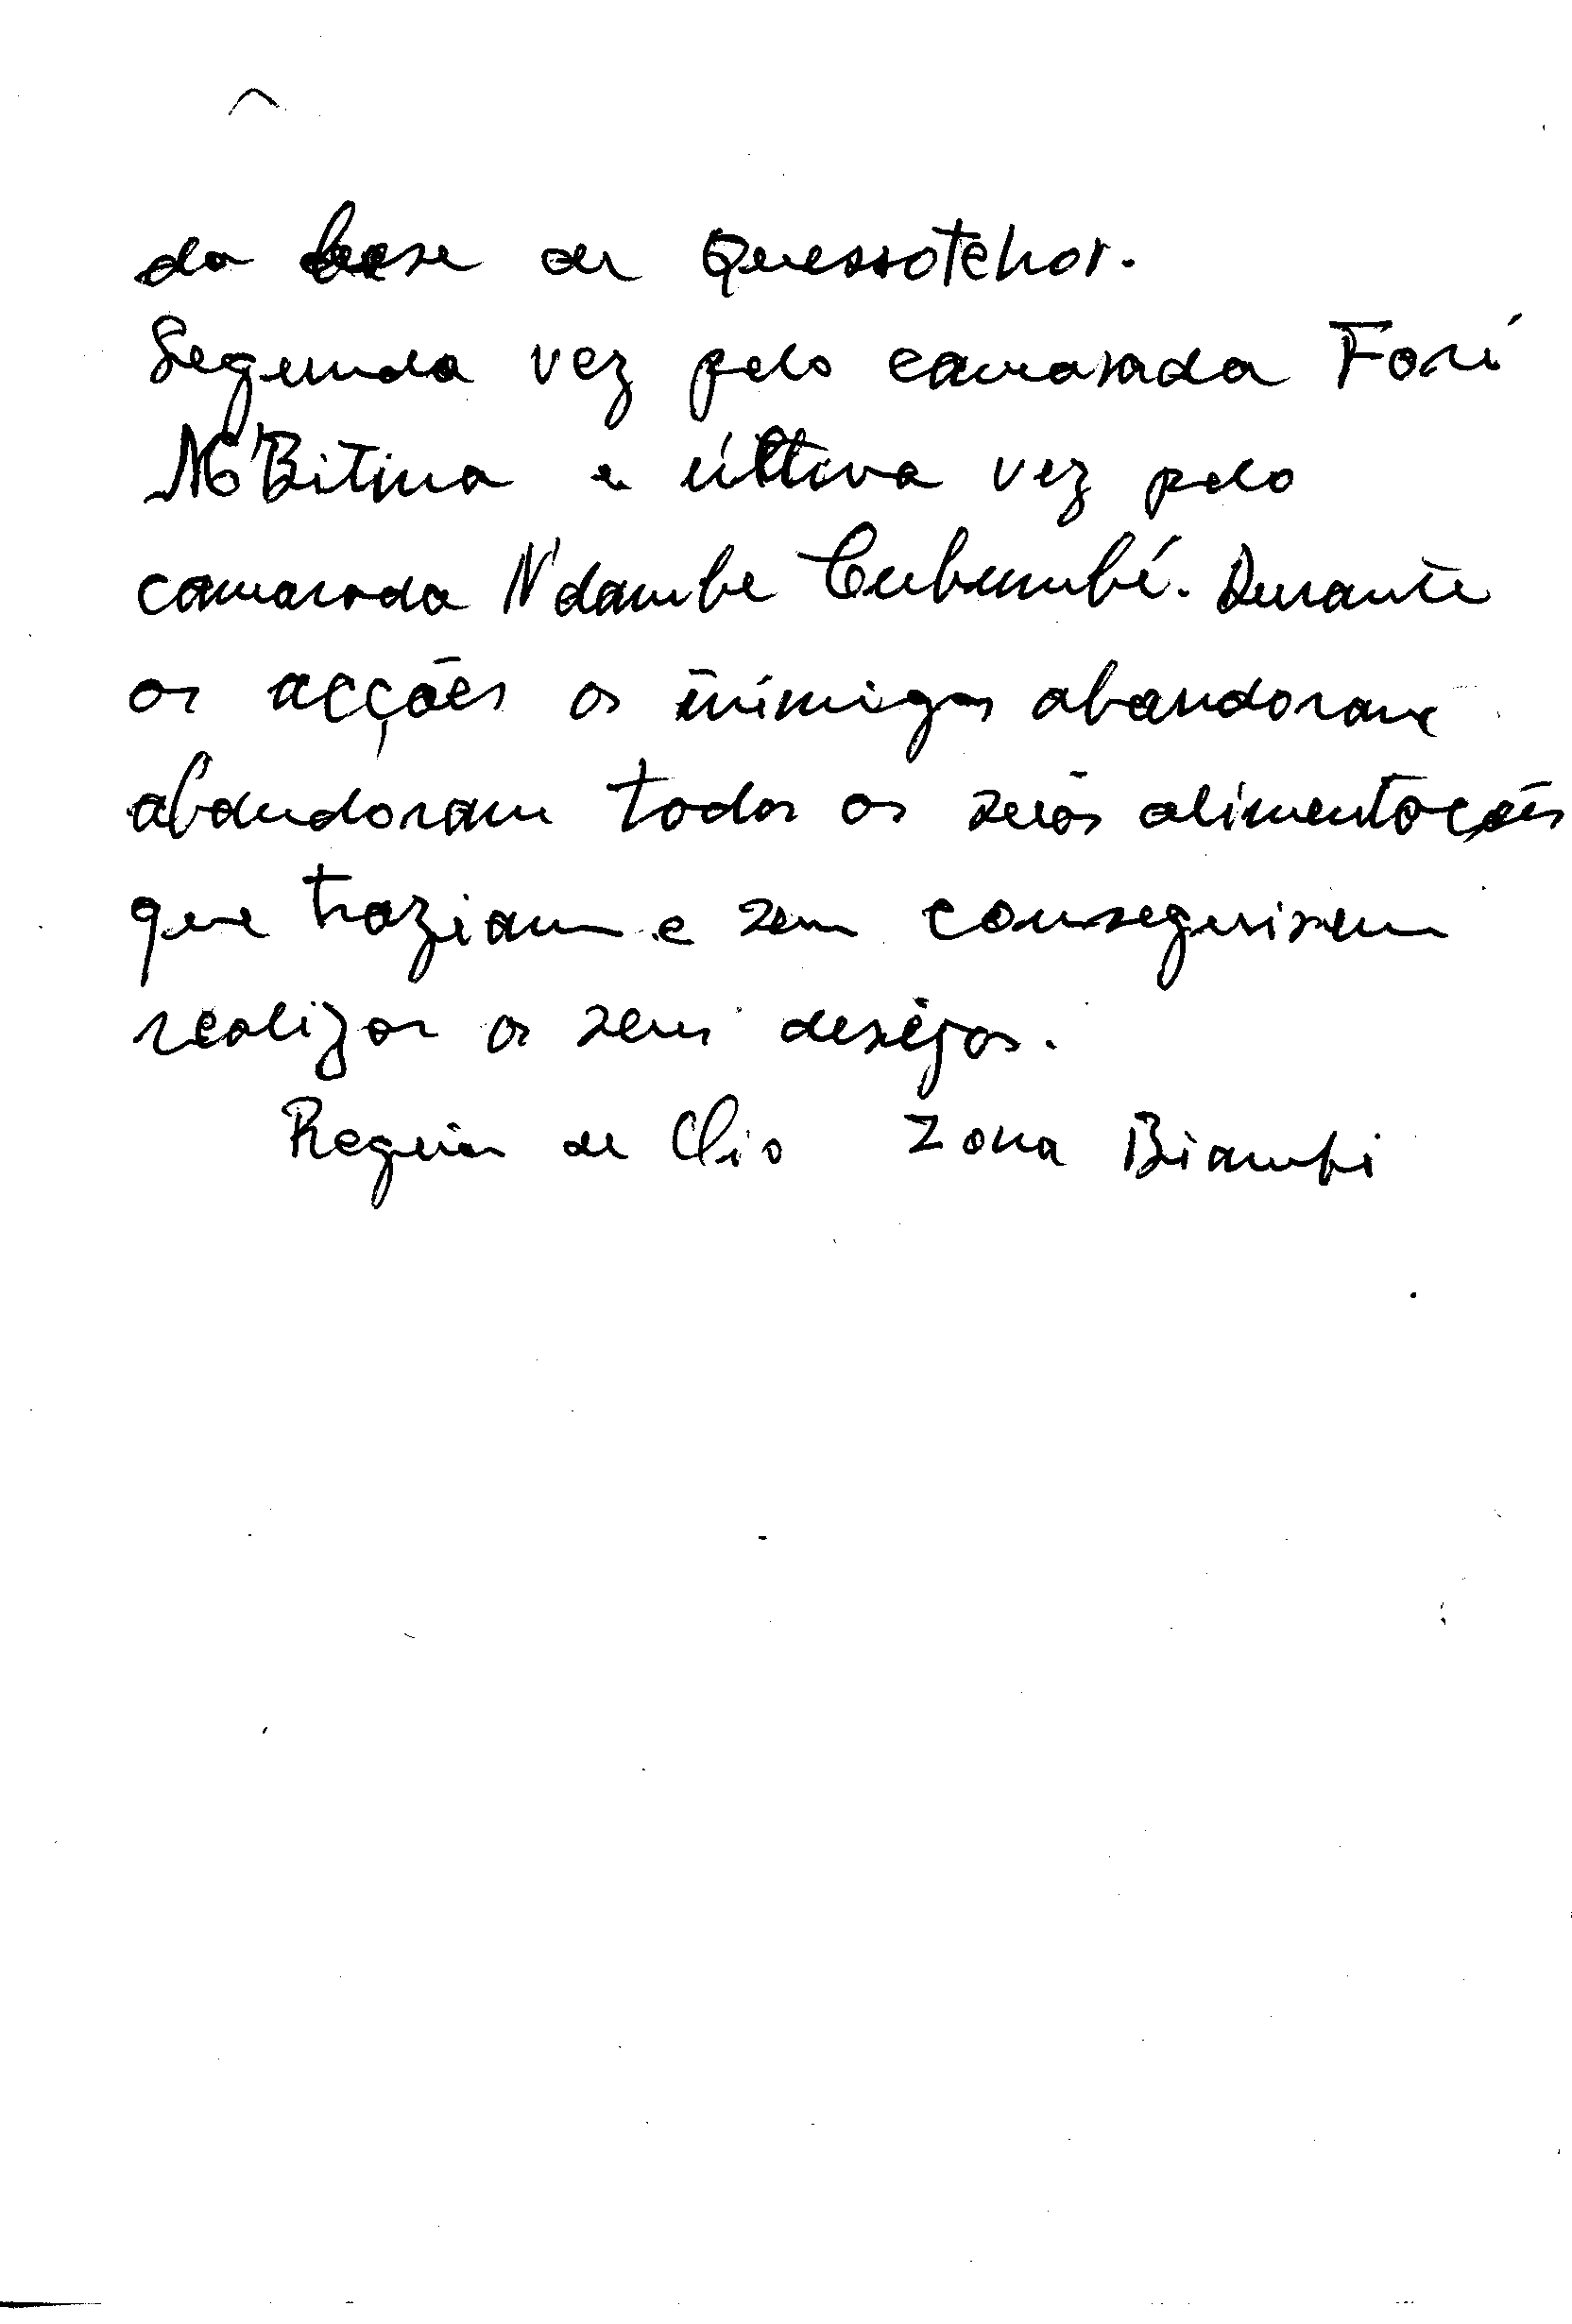 da base de Quessotchor.
Segunda vez pelo camarada Fori
M'Bitina e última vez pelo
camarada N'dambe Cubumbé. Durante
as acções os inimigos abandoram
abandoram todos os seus alimentações
que traziam e sem conseguirem
realizar os seus desejos.
Região de Oio Zona Biambi